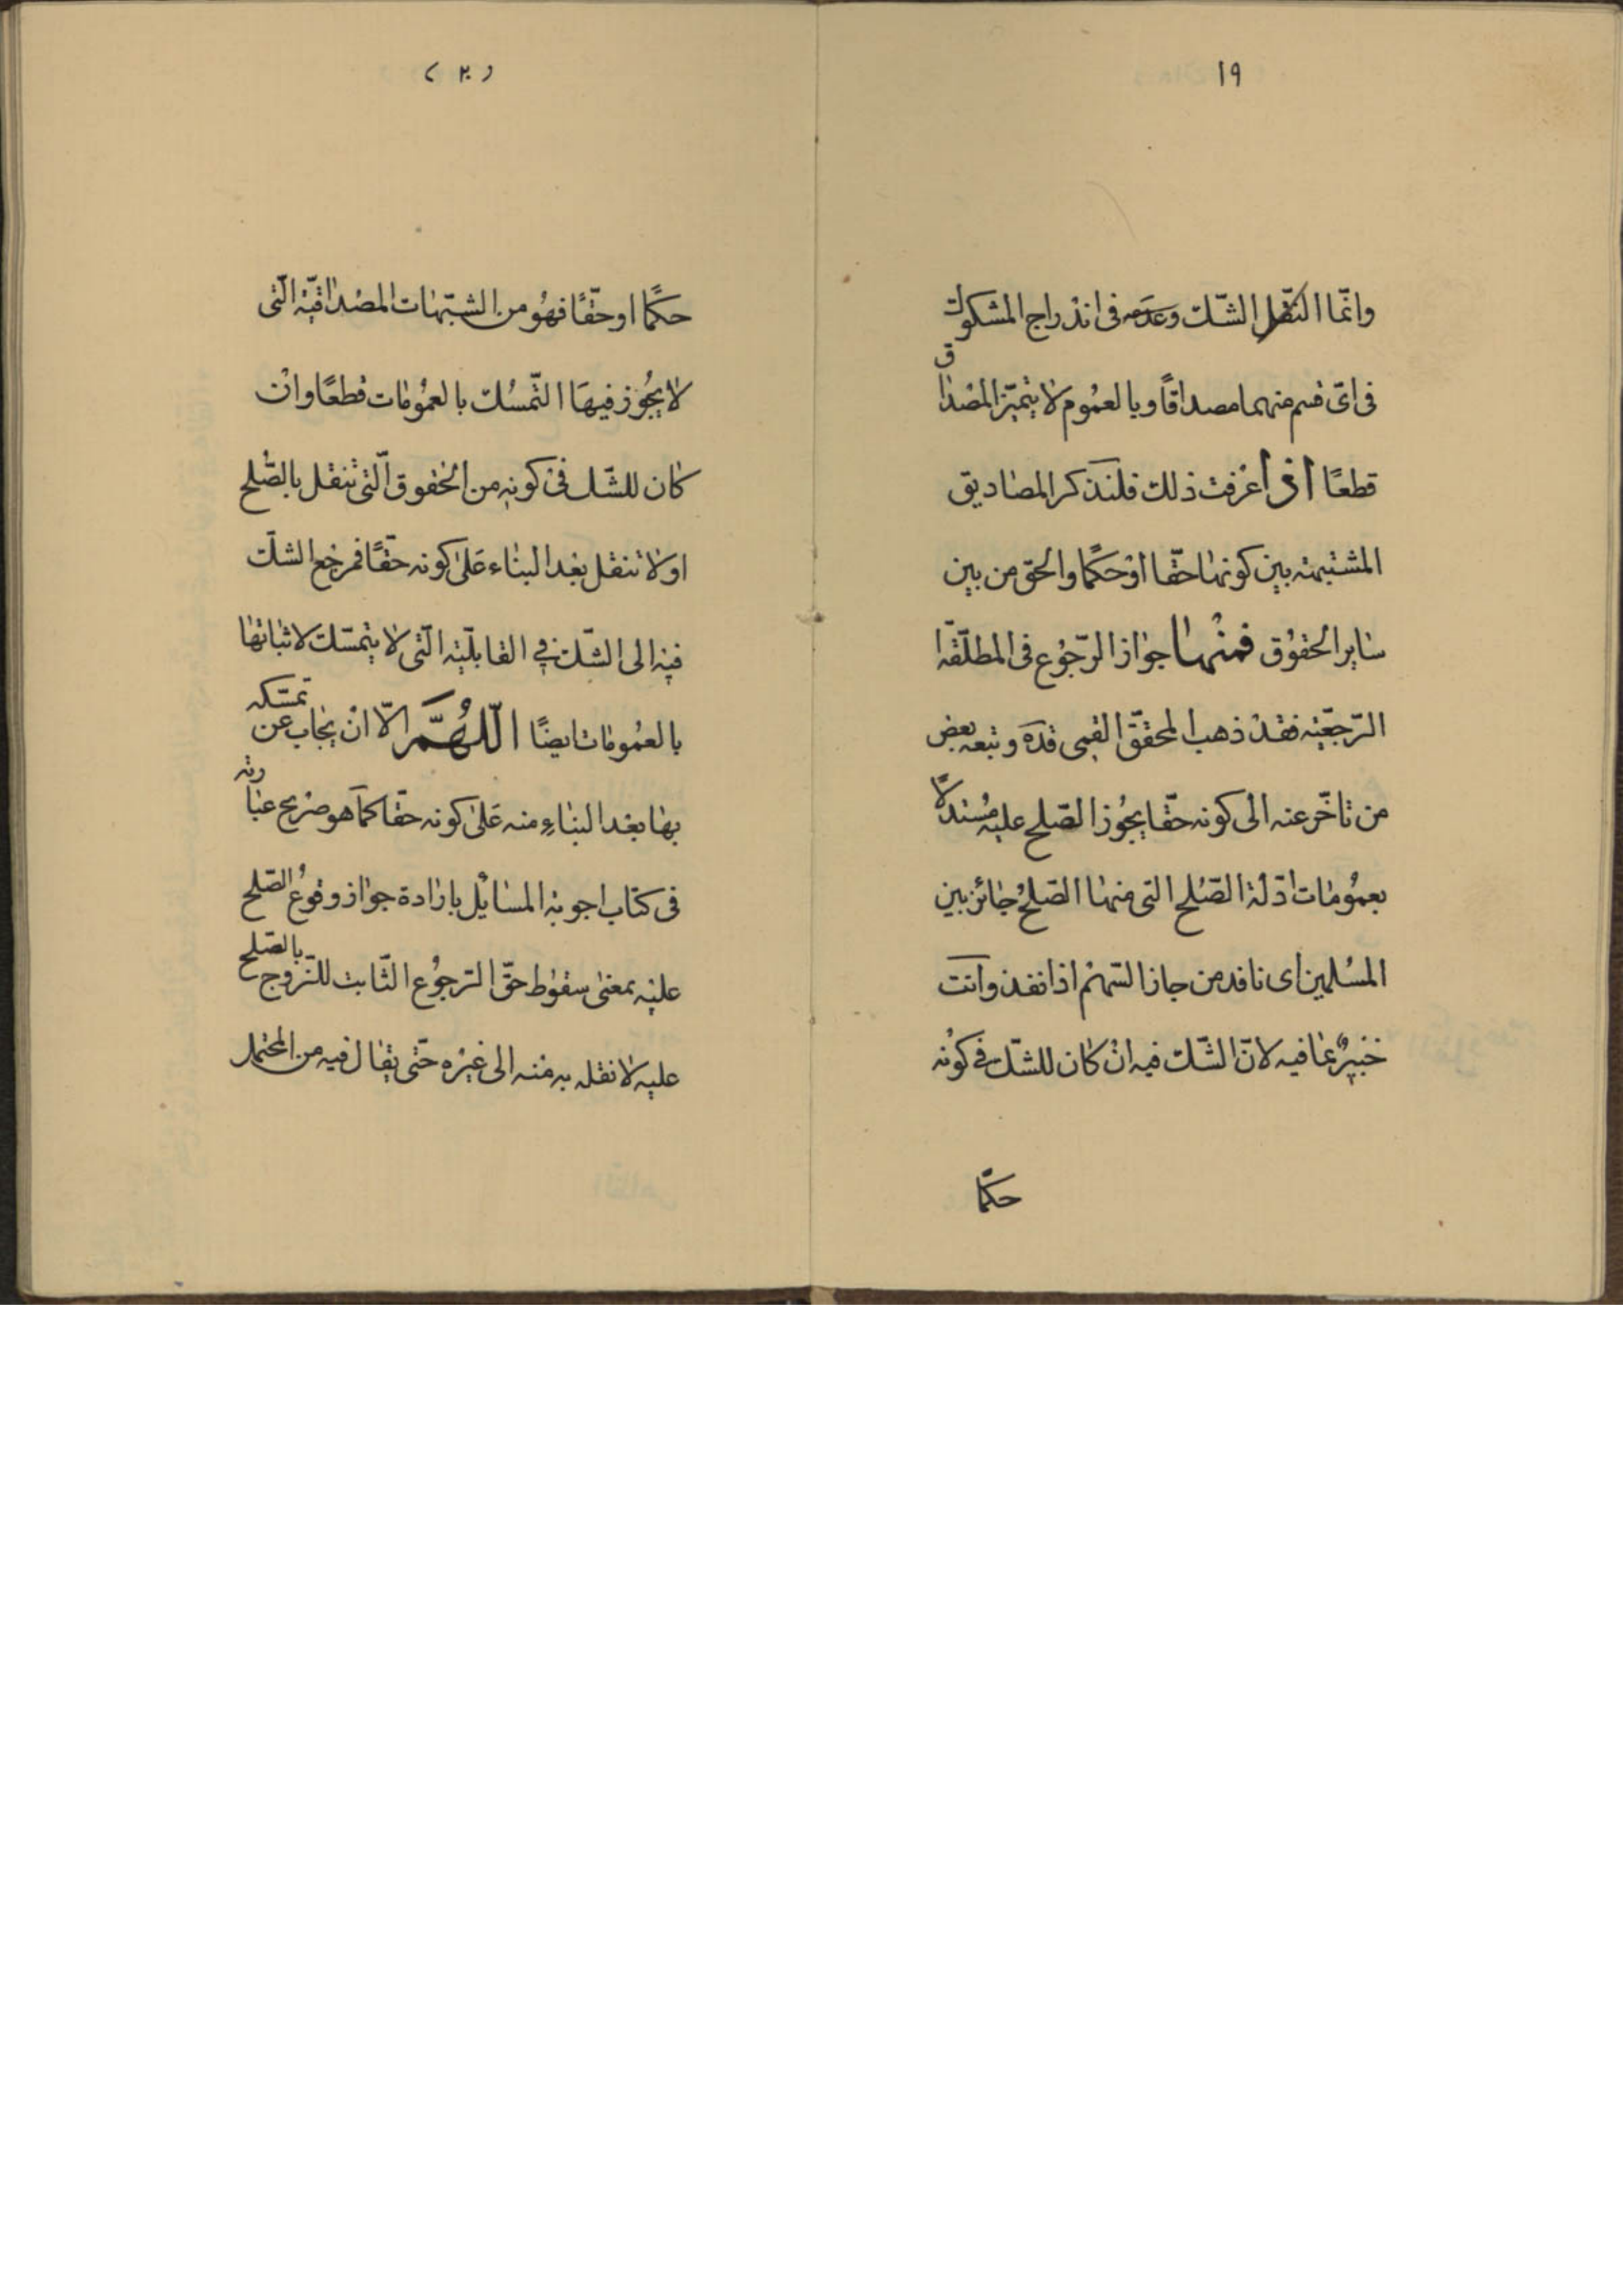 ١٩
وانّما الشّك وعدمه فى اندراج المشكوك
فى اىّ قسم منهما مصداقًا وبالعموم لا يتميّز المصداق
قطعًا اذا عرفت ذلك فلنذكر المصاديق
المشتبهة بين كونها حقّا او حكمًا والحق من بين
ساير الحقوق فمنها جواز الرّجوع فى المطلّقة
الرّجعيّة فقد ذهب المحقّق القمى قده وتبعه بعض
من تاخّر عنه الى كونه حقّا يجوز الصّلح عليه مستدلًّا
بعمومات ادلّة الصّلح التى منها الصّلح جائز بين
المسلمين اى نافذ من جاز السّهم اذا نفذ وانت
خبير بما فيه لانّ الشّك فيه ان كان للشّك فى كونه
حكمًا
(٢٠)
حكمًا او حقّا فهو من الشّبهات المصداقيّة الّتى
لا يجوز فيها التّمسّك بالعمومات قطعًا وان
كان للشّك فى كونه من الحقوق الّتى تنقل بالصّلح
او لا تنقل بعد البناء على كونه حقّا فمرجع الشّك
فيه الى الشّك فى القابليّة الّتى لا يتمسّك لاثباتها
بالعمومات ايضًا اللّهمّ الّا ان يجاب عن تمسّكه
بها بعد البناء منه على كونه حقّا كما هو صريح عبارته
فى كتاب اجوبة المسائل بارادة جواز وقوع الصّلح
عليه بمعنى سقوط حقّ الرّجوع الثّابت للزّوج بالصّلح
عليه لا نقله به منه الى غيره حتّى يقال فيه من المحتمل